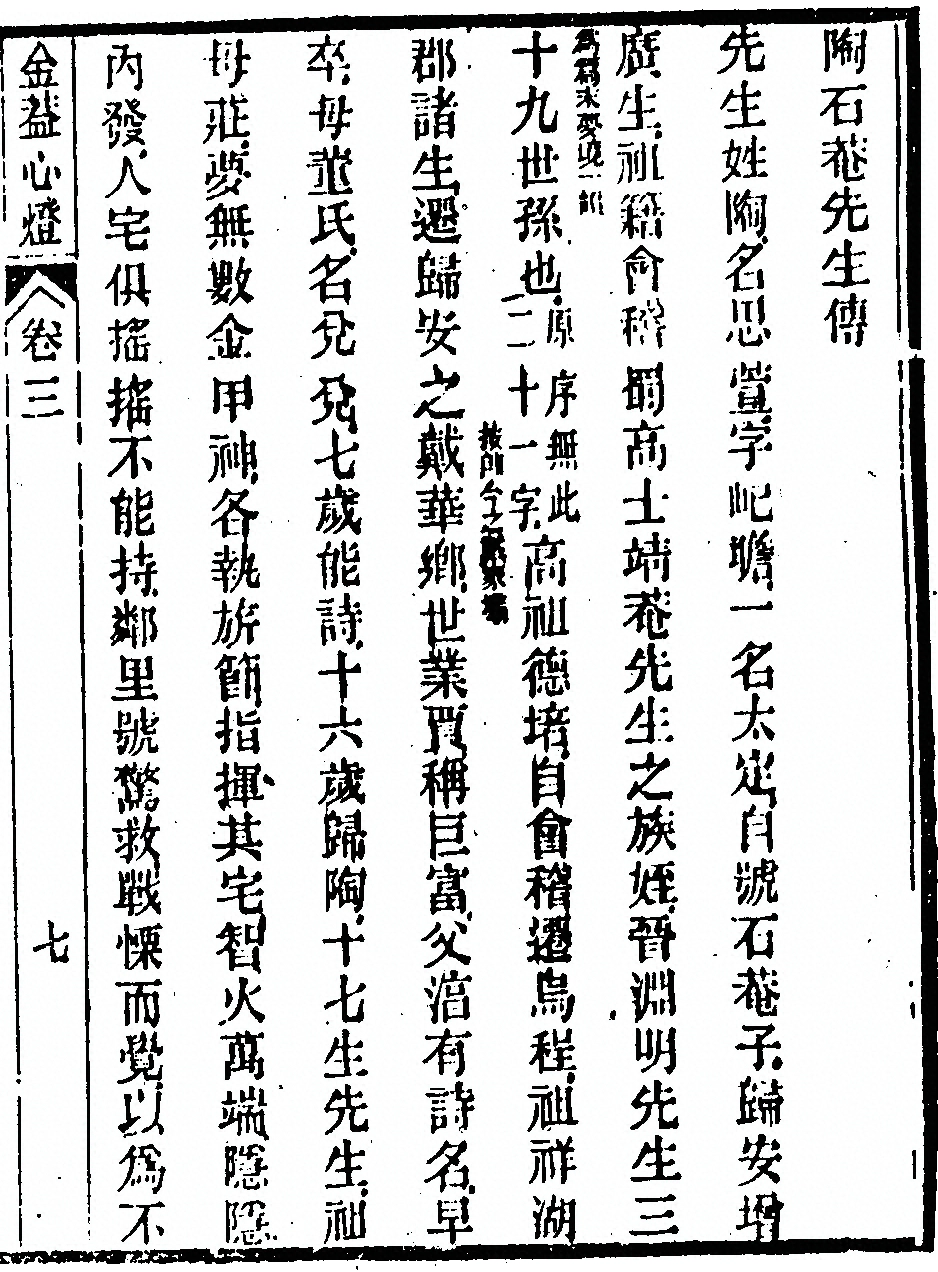 陶石菴先生傳
先生姓陶名思萱字屺瞻一名太定自號石菴子歸安增
廣生祖籍會稽蜀高士靖菴先生之族姪晉淵明先生三
十九世孫也原序無此二十一字高祖德培自會稽遷烏程祖祥湖
郡諸生遷歸安之戴華鄉世業賈稱巨富父淯有詩名早
卒母董氏名兌兌七歲能詩十六歲歸陶十七生先生祖
母莊夢無數金甲神各執旂節指揮其宅智火萬端隱隱
內發人宅俱搖搖不能持鄰里號驚救戰慄而覺以爲不
金蓋心燈
卷三
七